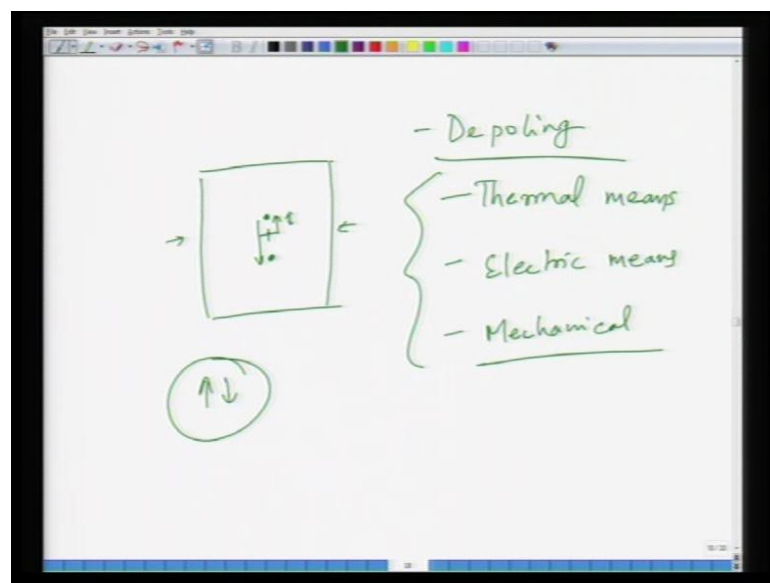 File Edit View Insert Actions Tools Help
- Depoling
- Thermal means
- Electric means
- Mechanical